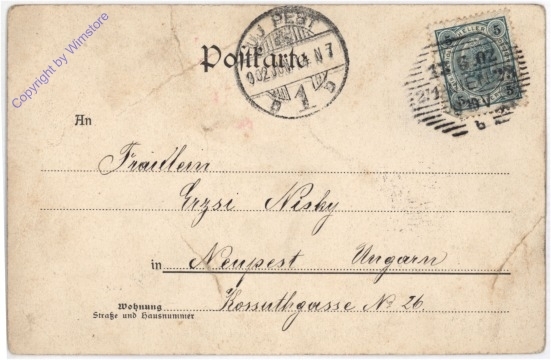 Copyright by Wimstore
Postkarte
ÚJ PEST
902
N 7
1
D D
5
5
6 02
b
An
Fraidlein
Erzsi Nisky
in Neupest Ungarn
Wohnung
Straße und Hausnummer
Kossuthgasse No 26.